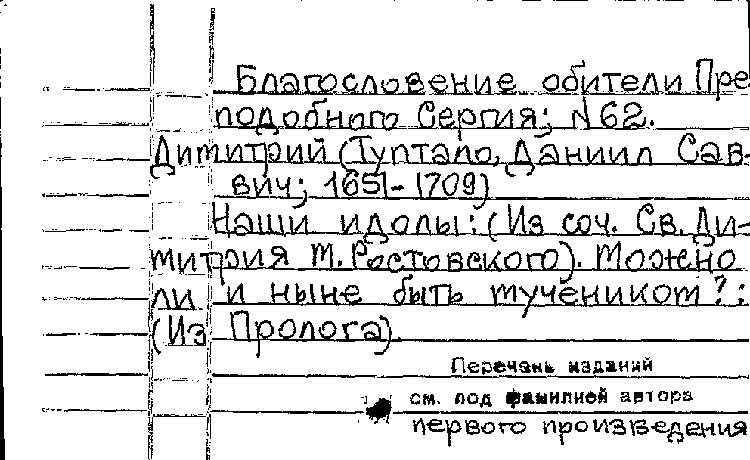 Благословение обители Пре
подобного Сергия; N 62.
Димитрий (Туптало, Даниил Сав-
вич; 1651-1709)
Наши идолы: (Из соч. Св. Ди-
митрия М. Ростовского). Можно
ли и ныне быть мучеником?:
(Из Пролога).
Перечень изданий
см. под фамилией автора
первого произведения